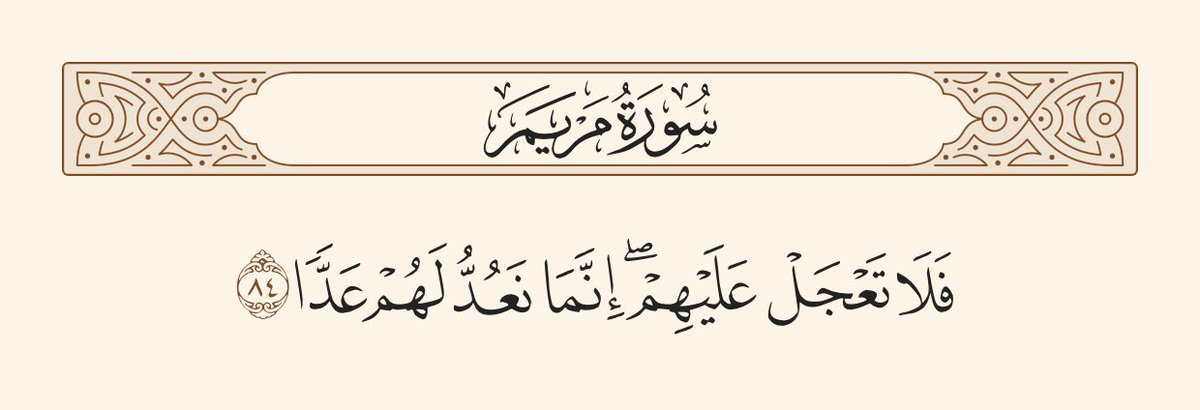 سُورَةُ مَرْيَمَ
فَلَا تَعْجَلْ عَلَيْهِمْ ۖ إِنَّمَا نَعُدُّ لَهُمْ عَدًّا ٨٤